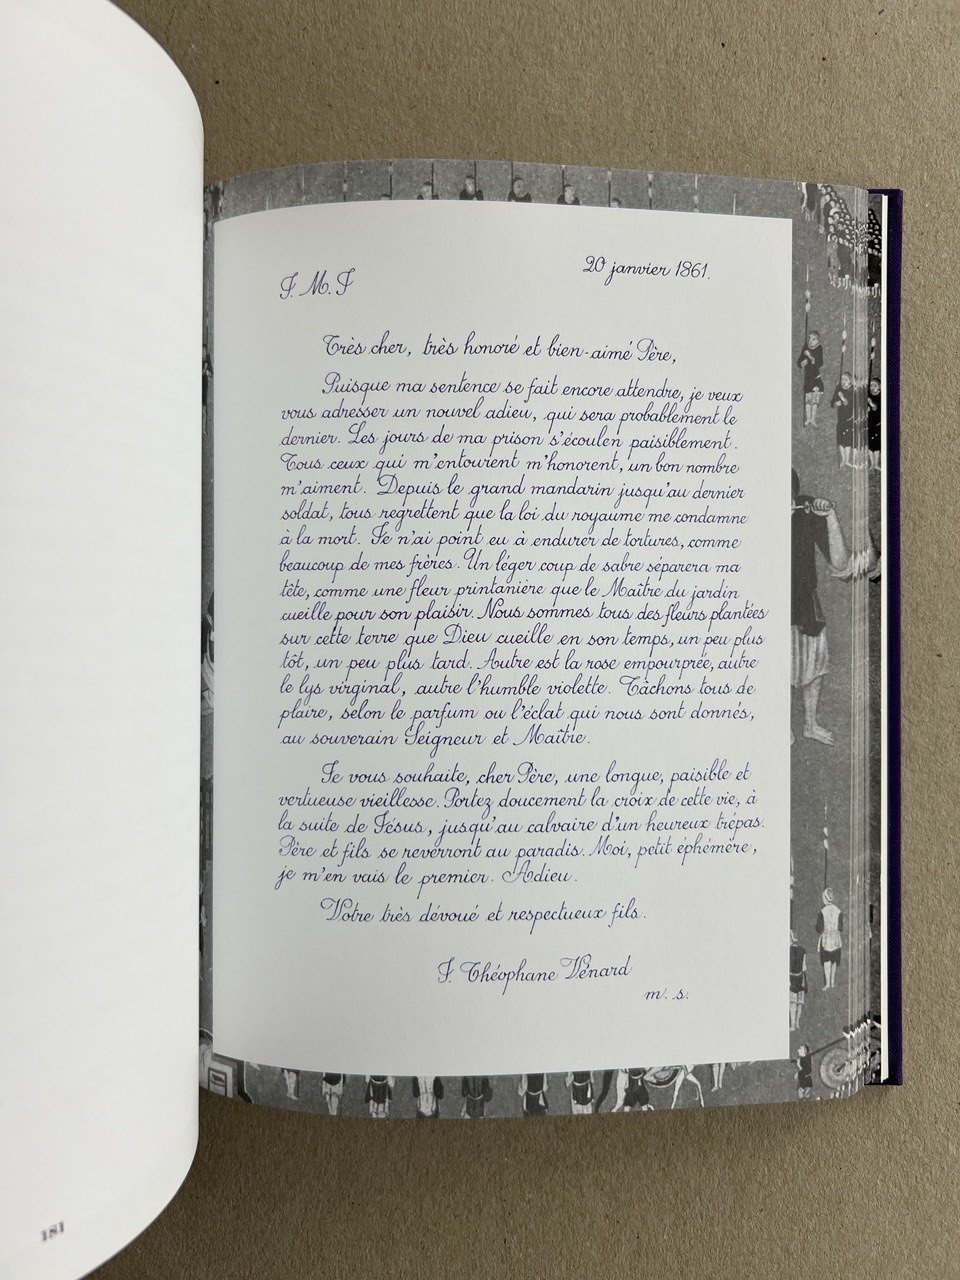 20 janvier 1861.
J. M. J
Très cher, très honoré et bien-aimé Père,
Puisque ma sentence se fait encore attendre, je veux
vous adresser un nouvel adieu, qui sera probablement le
dernier. Les jours de ma prison s'écoulen paisiblement.
Tous ceux qui m'entourent m'honorent, un bon nombre
m'aiment. Depuis le grand mandarin jusqu'au dernier
soldat, tous regrettent que la loi du royaume me condamne
à la mort. Je n'ai point eu à endurer de tortures, comme
beaucoup de mes frères. Un léger coup de sabre séparera ma
tête, comme une fleur printanière que le Maître du jardin
cueille pour son plaisir. Nous sommes tous des fleurs plantées
sur cette terre que Dieu cueille en son temps, un peu plus
tôt, un peu plus tard. Autre est la rose empourprée, autre
le lys virginal, autre l'humble violette. Tâchons tous de
plaire, selon le parfum ou l'éclat qui nous sont donnés,
au souverain Seigneur et Maître.
Je vous souhaite, cher Père, une longue, paisible et
vertueuse vieillesse. Portez doucement la croix de cette vie, à
la suite de Jésus, jusqu'au calvaire d'un heureux trépas.
Père et fils se reverront au paradis. Moi, petit éphémère,
je m'en vais le premier. Adieu.
Votre très dévoué et respectueux fils.
J. Théophane Vénard
m. s.
181